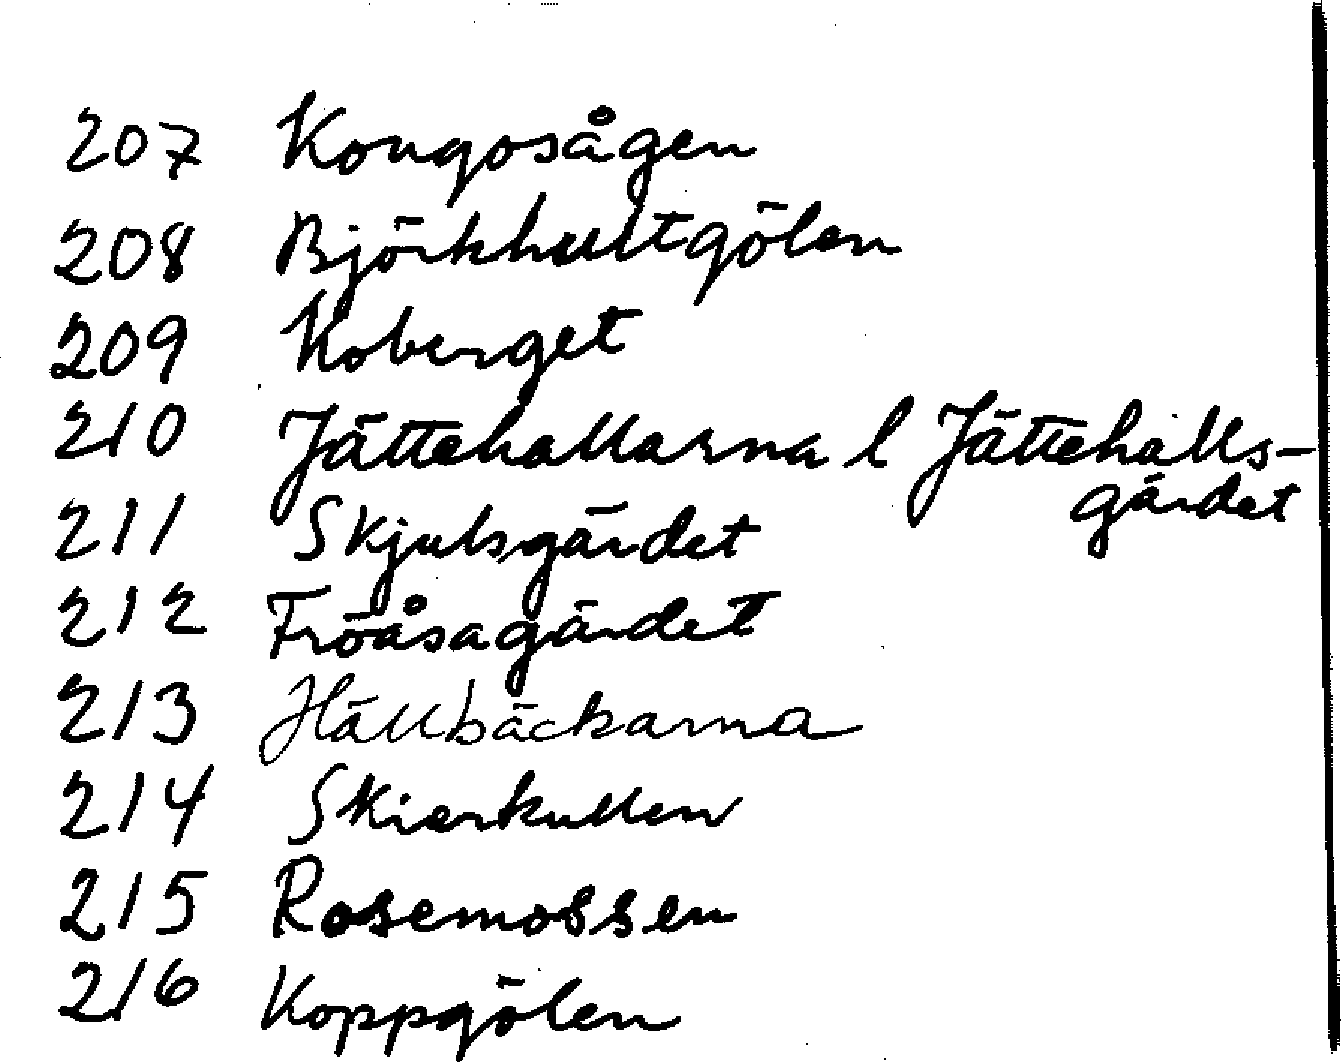 207 Kongosågen
208 Björkhultgölen
209 Koberget
210 Jättehallarna l Jättehalls-
gärdet
211 Skjulsgärdet
212 Fröåsagärdet
213 Hällbäckarna
214 Skierkullen
215 Rosemossen
216 Koppgölen